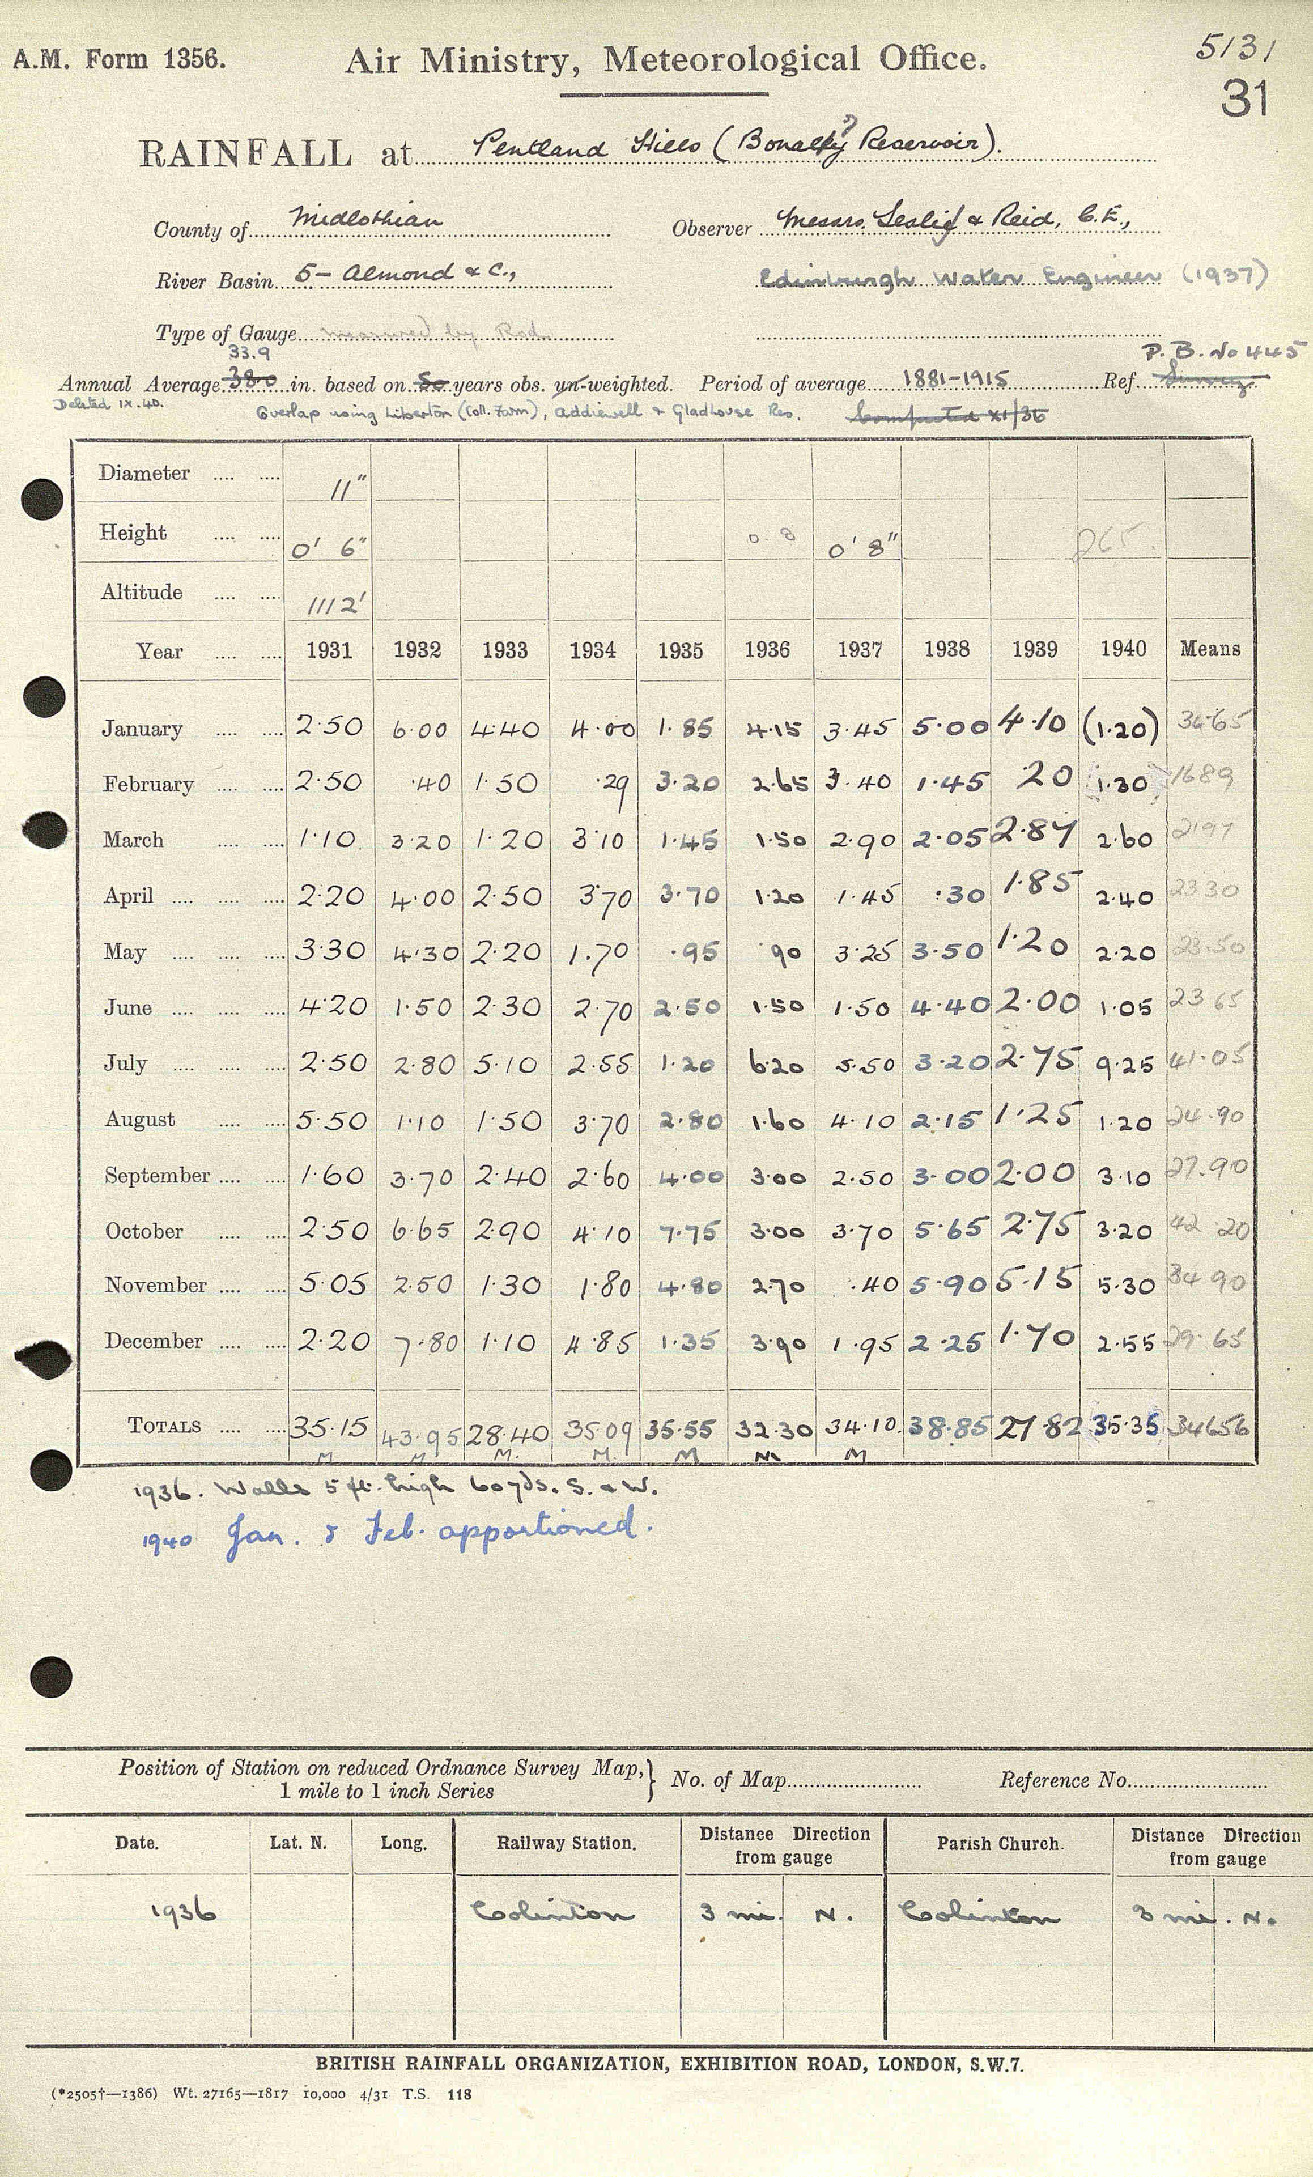 A.M. Form 1356.
Air Ministry, Meteorological Office.
5131
31
RAINFALL at Pentland Hills (Bonally ? Reservoir).
County of Midlothian
Observer Messrs. Leslie & Reid, C.E.,
River Basin 5 - Almond & C.,
Edinburgh Water Engineer (1937)
Type of Gauge measured by Rod
33.9
P.B. No 445
Annual Average 38.0 in. based on 50 years obs. un-weighted. Period of average 1881-1915 Ref. Survey
Deleted IX.40. Overlap using Liberton (Coll. Farm), Addiewell & Gladhouse Res. Computed XI/36
Diameter .... .... 11"
Height .... .... 0' 6" 0 8 0' 8" 265
Altitude .... .... 1112'
Year .... .... 1931 1932 1933 1934 1935 1936 1937 1938 1939 1940 Means
January .... .... 2.50 6.00 4.40 4.00 1.85 4.15 3.45 5.00 4.10 (1.20) 36.65
February .... .... 2.50 .40 1.50 .29 3.20 2.65 3.40 1.45 .20 1.30 16.89
March .... .... 1.10 3.20 1.20 3.10 1.45 1.50 2.90 2.05 2.87 2.60 21.97
April .... .... .... 2.20 4.00 2.50 3.70 3.70 1.20 1.45 .30 1.85 2.40 23.30
May .... .... .... 3.30 4.30 2.20 1.70 .95 .90 3.25 3.50 1.20 2.20 23.50
June .... .... .... 4.20 1.50 2.30 2.70 2.50 1.50 1.50 4.40 2.00 1.05 23.65
July .... .... .... 2.50 2.80 5.10 2.55 1.20 6.20 5.50 3.20 2.75 9.25 41.05
August .... .... 5.50 1.10 1.50 3.70 2.80 1.60 4.10 2.15 1.25 1.20 24.90
September .... .... 1.60 3.70 2.40 2.60 4.00 3.00 2.50 3.00 2.00 3.10 27.90
October .... .... 2.50 6.65 2.90 4.10 7.75 3.00 3.70 5.65 2.75 3.20 42.20
November .... .... 5.05 2.50 1.30 1.80 4.80 2.70 .40 5.90 5.15 5.30 34.90
December .... .... 2.20 7.80 1.10 4.85 1.35 3.90 1.95 2.25 1.70 2.55 29.65
TOTALS .... .... 35.15 43.95 28.40 35.09 35.55 32.30 34.10 38.85 27.82 35.35 34656
M. M. M. M. M M M
1936. Walls 5 ft. high 60 yds. S. & W.
1940 Jan. & Feb. apportioned.
Position of Station on reduced Ordnance Survey Map, 1 mile to 1 inch Series } No. of Map Reference No.
Date. Lat. N. Long. Railway Station. Distance Direction from gauge Parish Church. Distance Direction from gauge
1936 Colinton 3 mi. N. Colinton 3 mi. N.
BRITISH RAINFALL ORGANIZATION, EXHIBITION ROAD, LONDON, S.W.7.
(*2505†—1386) Wt. 27165—1817 10,000 4/31 T.S. 118